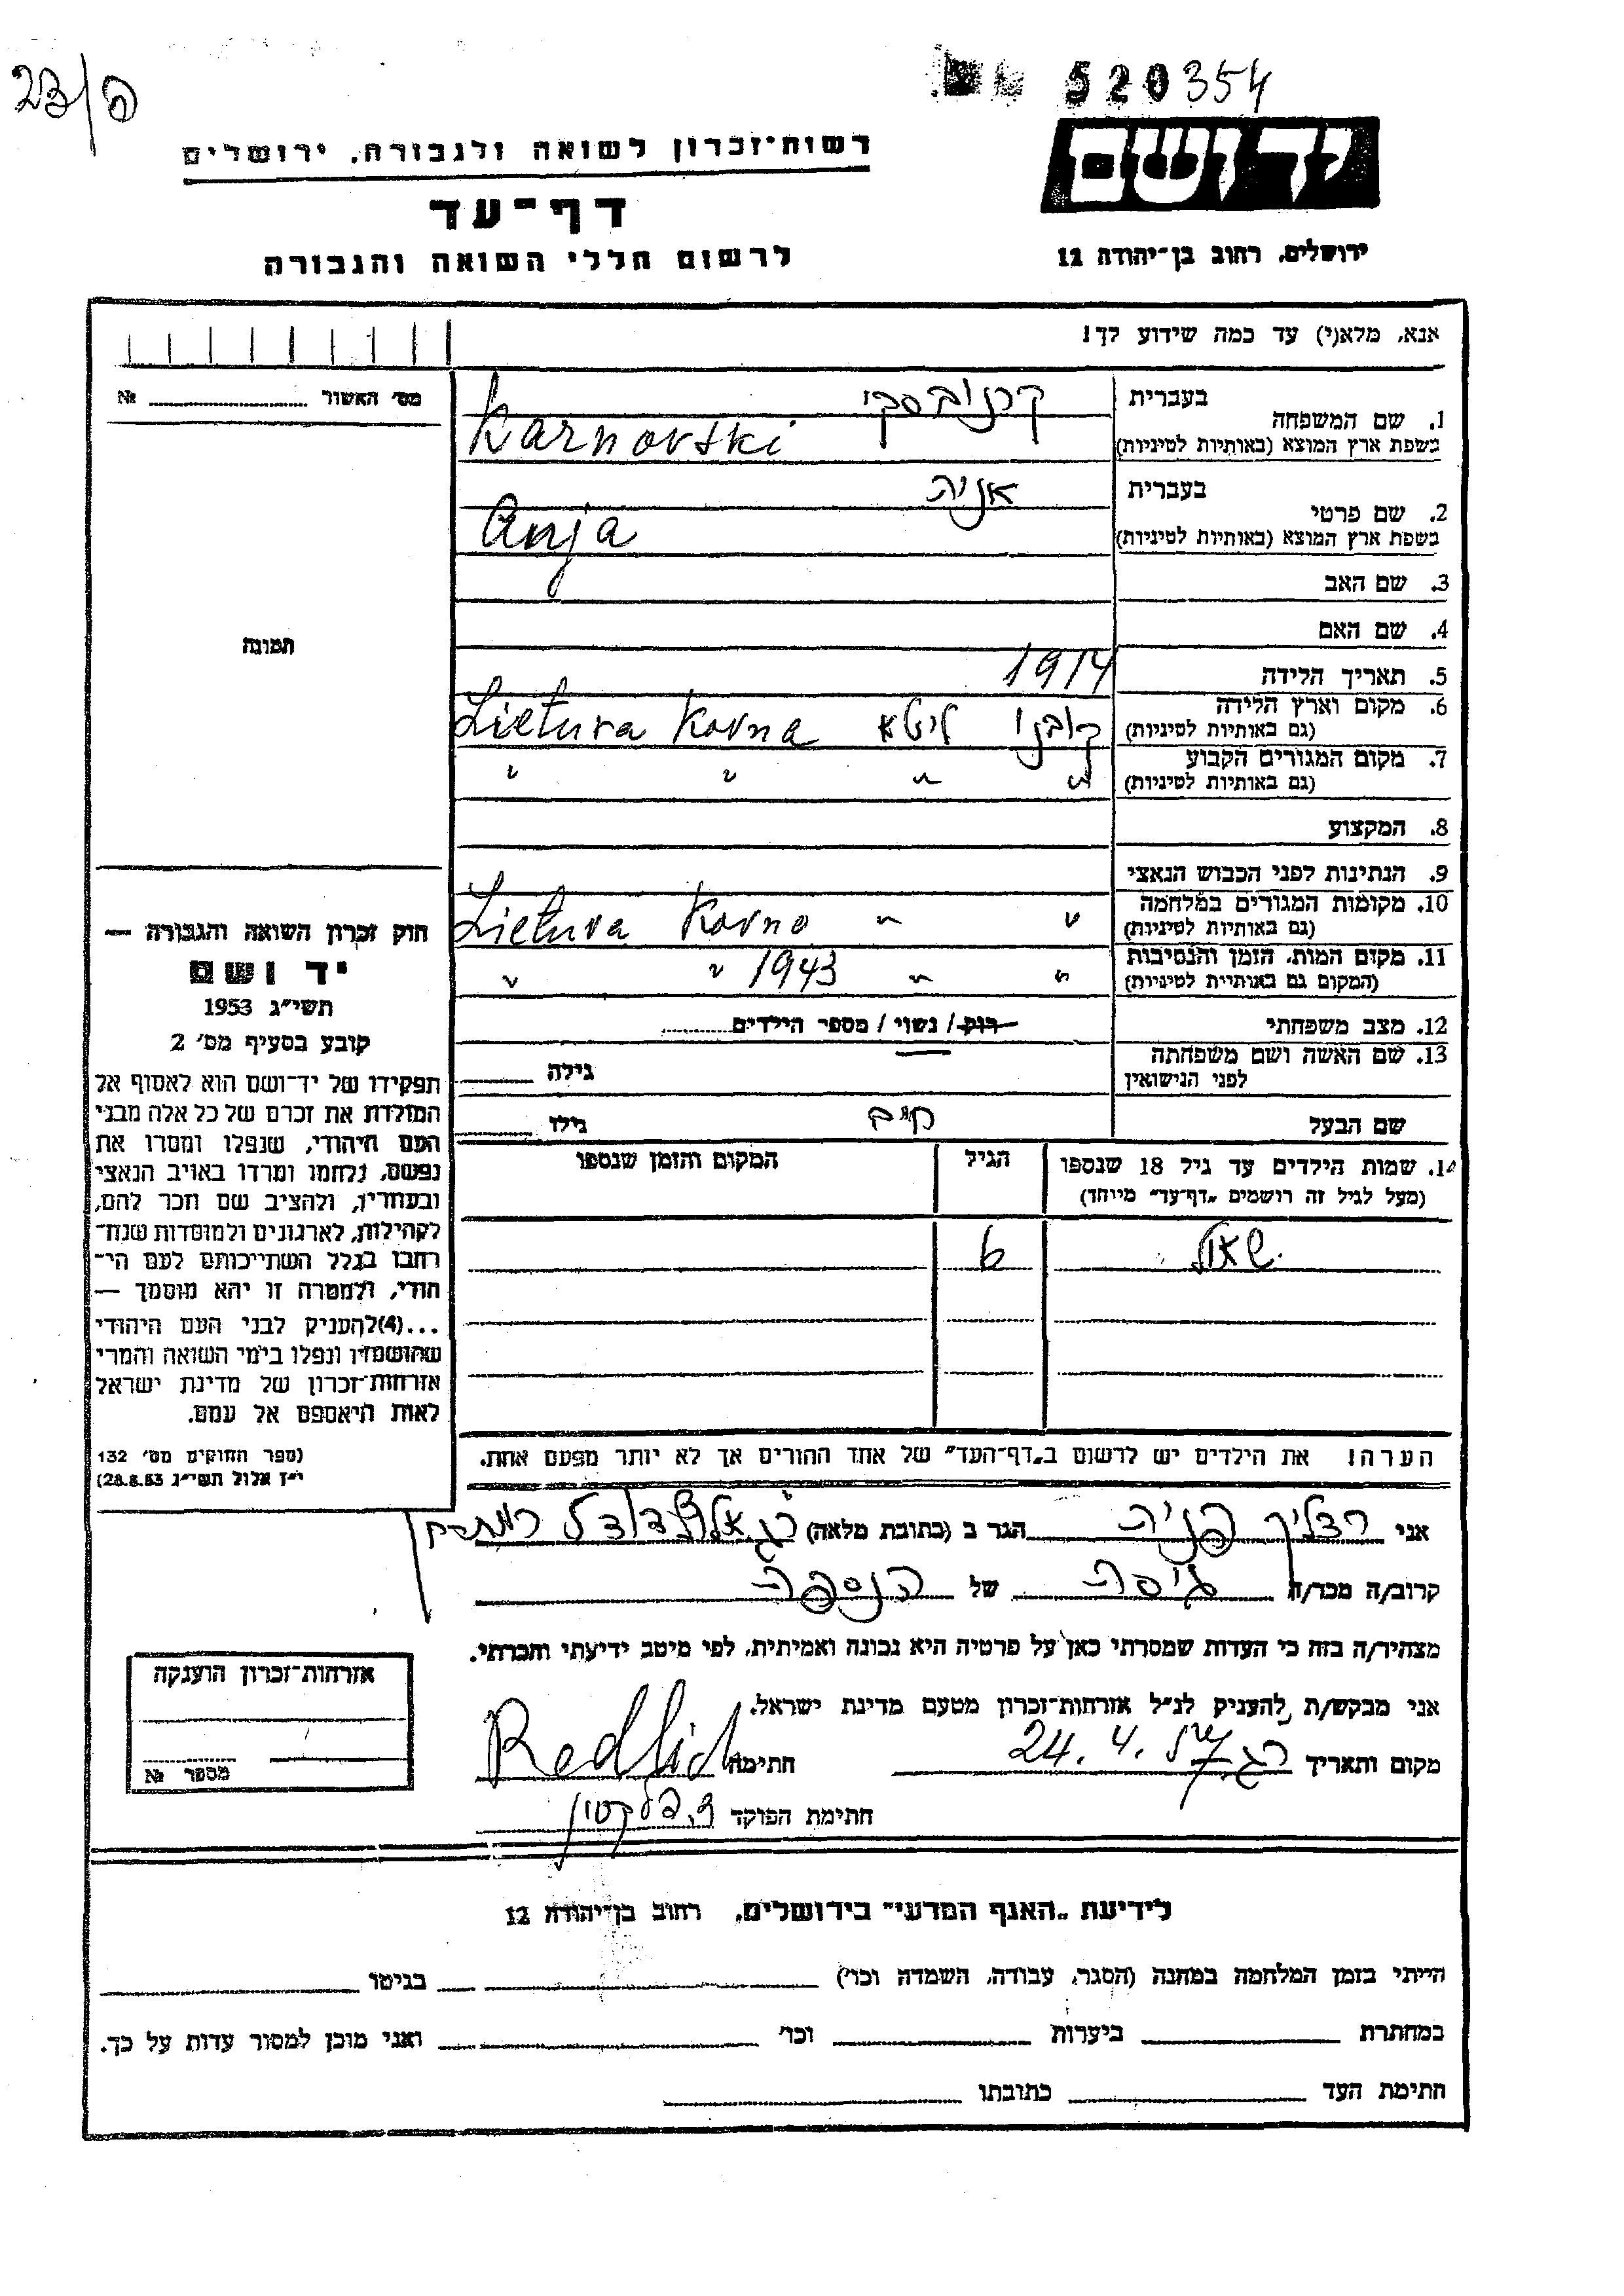 23/פ
520354
יד ושם
ירושלים, רחוב בן־יהודה 12
רשות־זכרון לשואה ולגבורה, ירושלים
דף־עד
לרשום חללי השואה והגבורה
אנא, מלא(י) עד כמה שידוע לך!
מס׳ האשור № 
תמונה
חוק זכרון השואה והגבורה —
יד ושם
תשי״ג 1953
קובע בסעיף מס׳ 2
תפקידו של יד־ושם הוא לאסוף אל
המולדת את זכרם של כל אלה מבני
העם היהודי, שנפלו ומסרו את
נפשם, נלחמו ומרדו באויב הנאצי
ובעוזריו, ולהציב שם וזכר להם,
לקהילות, לארגונים ולמוסדות שנח־
רבו בגלל השתייכותם לעם הי־
הודי, ולמטרה זו יהא מוסמך —
...(4)להעניק לבני העם היהודי
שהושמדו ונפלו בימי השואה והמרי
אזרחות־זכרון של מדינת ישראל
לאות היאספם אל עמם.
(ספר החוקים מס׳ 132
י״ז אלול תשי״ג 28.8.53)
בעברית קרנובסקי
1. שם המשפחה
בשפת ארץ המוצא (באותיות לטיניות) Karnovski
בעברית אניה
2. שם פרטי
בשפת ארץ המוצא (באותיות לטיניות) Anja
3. שם האב
4. שם האם
5. תאריך הלידה 1914
6. מקום וארץ הלידה
(גם באותיות לטיניות) קובנו ליטא Lietuva Kovna
7. מקום המגורים הקבוע
(גם באותיות לטיניות) " " " "
8. המקצוע
9. הנתינות לפני הכבוש הנאצי
10. מקומות המגורים במלחמה
(גם באותיות לטיניות) " " Lietuva Kovno
11. מקום המות, הזמן והנסיבות
(המקום גם באותיות לטיניות) " " 1943 " "
12. מצב משפחתי רוק / נשוי / מספר הילדים
13. שם האשה ושם משפחתה
לפני הנישואין גילה
שם הבעל חיים גילו
14. שמות הילדים עד גיל 18 שנספו הגיל המקום והזמן שנספו
(מעל לגיל זה רושמים „דף־עד״ מיוחד)
שאול 6
הערה! את הילדים יש לרשום ב„דף־העד״ של אחד ההורים אך לא יותר מפעם אחת.
אני רדליך פניה הגר ב (כתובת מלאה)
קרוב/ה מכר/ה גיסה של הנספה
מצהיר/ה בזה כי העדות שמסרתי כאן על פרטיה היא נכונה ואמיתית, לפי מיטב ידיעתי והכרתי.
אני מבקש/ת להעניק לנ״ל אזרחות־זכרון מטעם מדינת ישראל.
מקום ותאריך ר.ג. 24.4. חתימה Redlich
חתימת הפוקד
אזרחות־זכרון הוענקה
מספר №
לידיעת „האגף המדעי״ בירושלים, רחוב בן־יהודה 12
הייתי בזמן המלחמה במחנה (הסגר, עבודה, השמדה וכו׳) בגיטו
במחתרת ביערות וכו׳ ואני מוכן למסור עדות על כך.
חתימת העד כתובתו